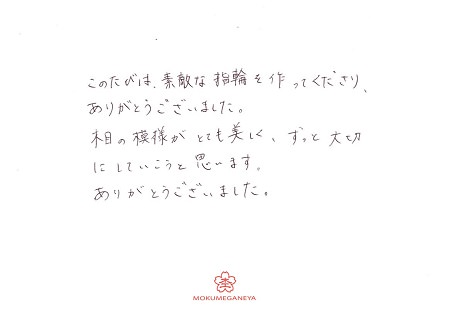 このたびは、素敵な指輪を作ってくださり、
ありがとうございました。
木目の模様がとても美しく、ずっと大切
にしていこうと思います。
ありがとうございました。
MOKUMEGANEYA